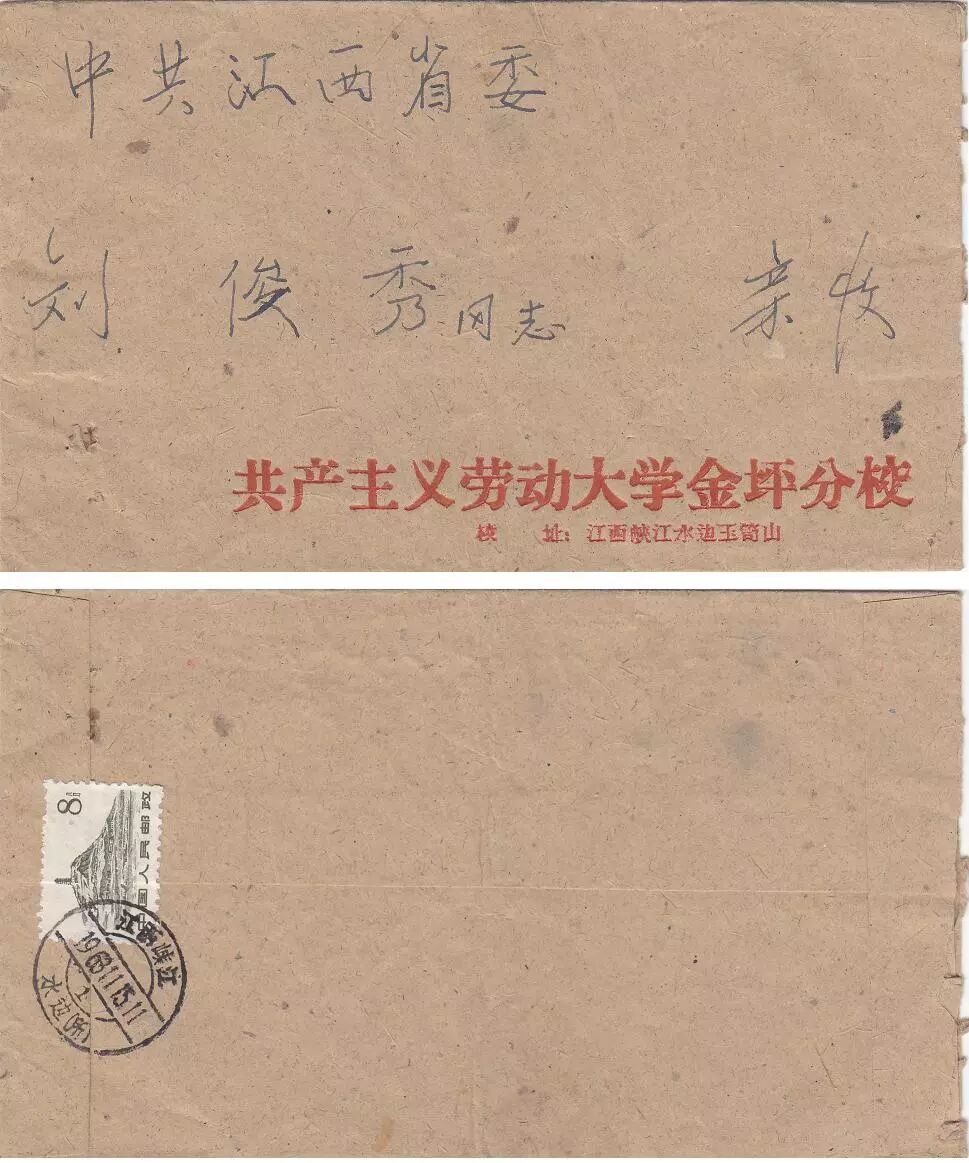 中共江西省委
刘俊秀同志 亲收
共产主义劳动大学金坪分校
校 址：江西峡江水边玉笥山
8分
中国人民邮政
江西峡江
1963.11.15.11
水边(所)